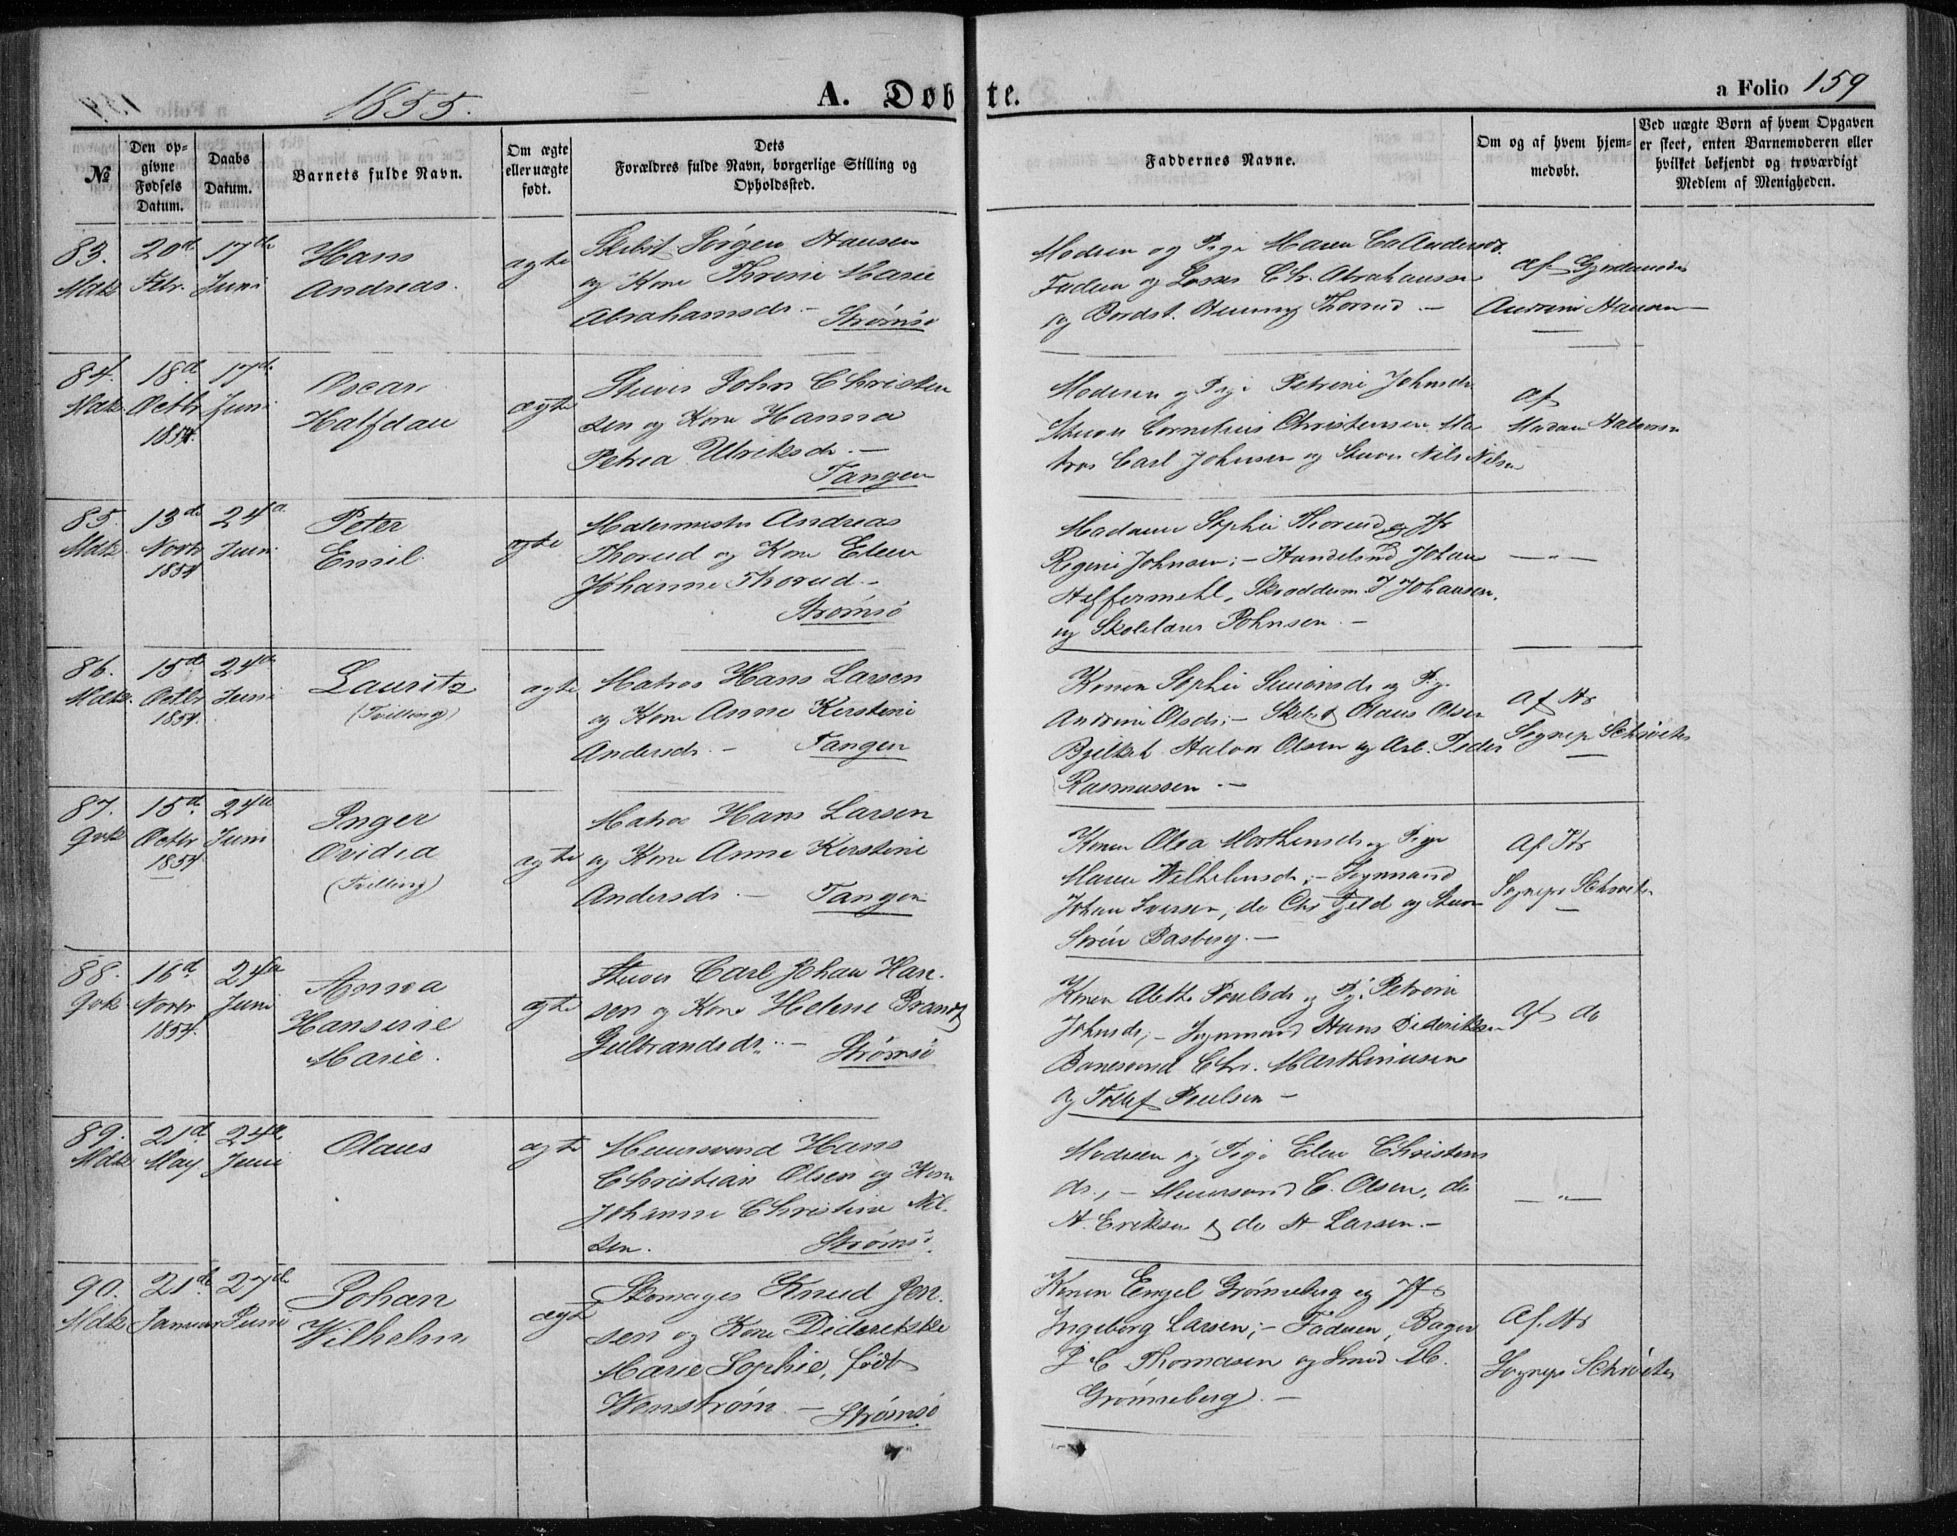 1855.
A. Døbte.
a Folio 159
№
Den opgivne Fødsels Datum.
Daabs Datum.
Barnets fulde Navn.
Om ægte eller uægte født.
Dets Forældres fulde Navn, borgerlige Stilling og Opholdssted.
Faddernes Navne.
Om og af hvem hjemmedøbt.
Ved uægte Børn af hvem Opgaven er skeet, enten Barnemoderen eller hvilket bekjendt og troværdigt Medlem af Menigheden.
83. 20d 17de
Mdk. Febr. Juni
Hans
Andreas.
ægte
Skibst Jørgen Hansen
og Kone Thrine Marie
Abrahamsdr. –
Strømsø
Moderen og Pige Maren
Faderen og Losser Chr. Abrahamsen
og Bordst. Henning Thorud. –
af Gjordemoder
Andrine Hansen
84. 18d 17de
Mdk. Octbr Juni
1854.
Oscar
Halfdan
ægte
Stuer John Christen
sen og Kone Hanna
Petrea Ulriksdr. –
Tangen
Moderen og Pige Petrine Johnsdr
Stuer Cornelius Christensen Ma
tros Carl Johnsen og Stuer Nils Nilsen
af
Madam Halvorsen
85. 13de 24d
Mdk. Novbr Juni
1854
Peter
Emil.
ægte
Malermester Andreas
Thorud og Kone Eleen
Johanne Thorud. –
Strømsø
Madame Sophie Thorud og Jfr
Regine Johnsen; – Handelsmd Johan
Helfermehl, Skræderm. J Johansen,
og Skolelærer Johnsen. –
– " –
86. 15d 24de
Mdk. Octbr Juni
1854.
Lauritz
(Tvilling)
ægte
Matros Hans Larsen
og Kone Anne Kerstine
Andersdr. – Tangen
Konen Sophie Simonsdr og Pig.
Andrine Olsdr; – Skibst Olaus Olsen
Bjelkeh. Halvor Olsen og Arb. Peder
Rasmussen. –
Af Hr
Sognep. Schrøeter
87. 15d 24de
Qvk. Octbr Juni
1854.
Inger
Ovidia
(Tvilling)
ægte
Matros Hans Larsen
og Kone Anne Kerstine
Andersdr. – Tangen
Konen Olea Morthensdr og Pige
Maren Wilhelmsdr; – Sognmand
Johan Iversen, do Chr Fjeld og Stuer
Søren Basberg. –
Af Hr
Sognep. Schrøeter
88. 16d 24de
Qvk Novbr Juni
1854.
Anna
Hansine
Marie.
ægte
Stuer Carl Johan Han-
sen og Kone Helene Brandt
Gulbrandsdr. – Strømsø
Konen Alette Poulsdr og Pig. Petrine
Johnsdr; – Sognmand Hans Dideriksen
Banesvend Chr. Marthiniusen
og Tollef Poulsen –
af do
89. 21d 24de
Mdk. May Juni
Olaus
ægte
Muursvend Hans
Christian Olsen og Kone
Johanne Christine Nil-
sen. Strømsø.
Moderen og Pige Elen Christens
dr., – Muursvend C. Olsen, do
H. Eriksen & do H Larsen. –
– " –
90. 21de 27de
Mdk Januar Juni
Johan
Wilhelm
ægte
Skomager Knud Jen-
sen og Kone Diderikke
Marie Sophie, født
Wenstrøm. – Strømsø
Konen Engel Grønneberg og Jfr
Ingeborg Larsen; – Faderen, Bager
J C Thomasen og Smed M.
Grønneberg. –
Af Hr
Sognep Schrøeter